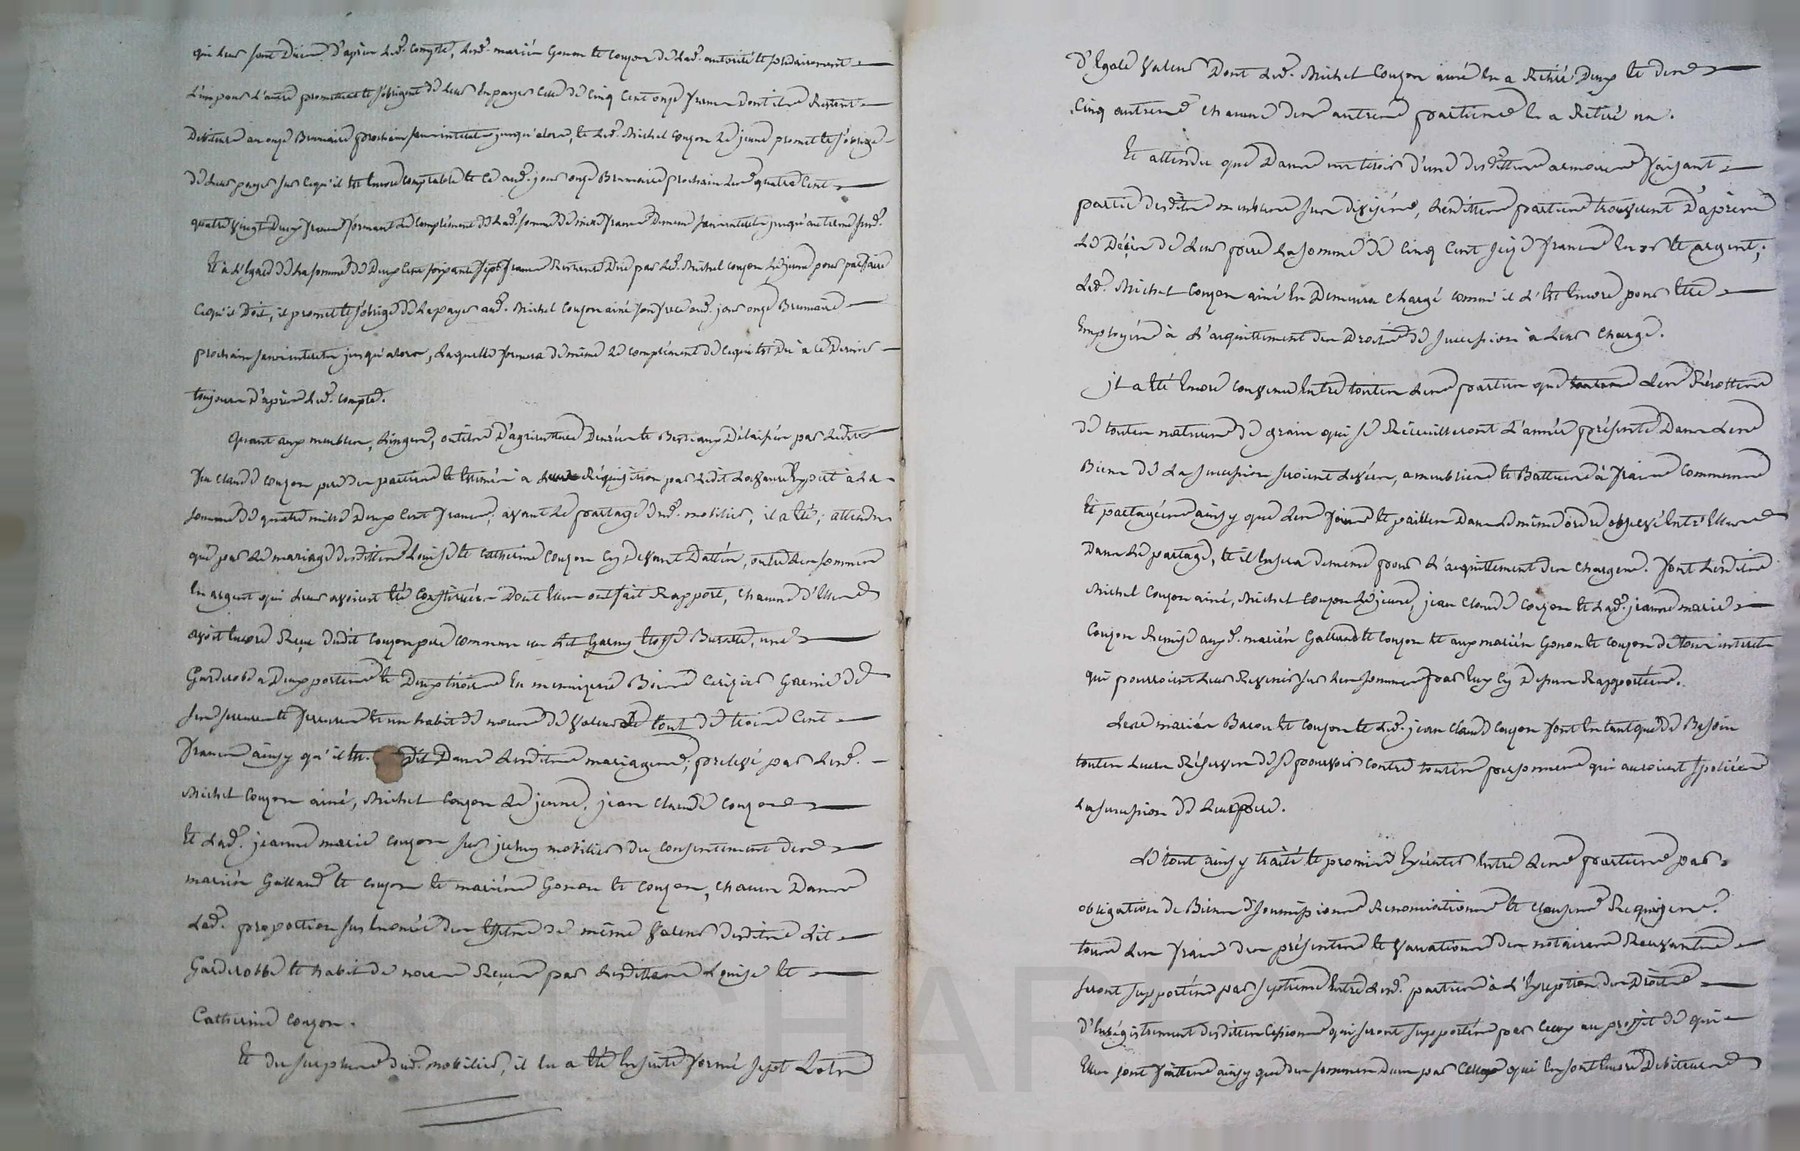 qui leur sont Dües D'après Led. compte, Lesd. mariés Gonon et Couzon de Lad. autorité et solidairement
L'un pour L'autre promettent et s'obligent de Leur En payer Celle de Cinq Cent onze francs Dont ils Restent
Debiteurs au onze Brumaire prochain sans interets jusqu'alors, et Led. Michel Couzon Le jeune promet et s'oblige
de Leur payer sur Ce qu'il Est Encore Comptable et Ce aud. jour onze Brumaire prochain Les quatre Cent
quatre vingt Deux francs formant Le Complement de Lad. somme de mille francs De même sans interets jusqu'au terme susd.
Et à L'Egard de La somme de Deux Cent soixante sept francs Restante Düe par Led. Michel Couzon Le jeune pour parfaire
Ce qu'il Doit, il promet et s'oblige de La payer aud. Michel Couzon ainé son frere aud. jour onze Brumaire
prochain sans interets jusqu'alors, Laquelle formera de même Le complement de Ce qui Est Dû à Ce Dernier
toujours D'après Led. compte.
Quant aux meubles, Linges, outils D'agriculture Denrées et Bestiaux Délaissés par Ledit
feu Claude Couzon pere des parties et Estimés à Leur Réquisition par Ledit Expert à La
somme de quatre mille Deux Cent francs; avant Le partage dud. mobilier, il a Eté, attendu
que par Le mariage desdittes Louise et Catherine Couzon Cy devant Dattés, outre Les sommes
En argent qui Leur avoient Eté Constituées Dont Elles ont fait Rapport, Chacune d'Elles
avoit Encore Reçu dudit Couzon pere commun un Lit Garny Etoffe Buratte, une
Garderobe a Deux portes et Deux tiroirs En menuizerie Bois Cerizier Garnie de
ses serrures et ferrures Et un habit de noces de valeur Le tout de trois Cent
francs ainsy qu'il Est Dit Dans Lesdits mariages; prelevé par Lesd.
Michel Couzon ainé, Michel Couzon Le jeune, jean Claude Couzon
et Lad. jeanne marie Couzon sur Le mobilier du Consentement des
mariés Galland et Couzon et mariés Gonon et Couzon, Chacun Dans
Lad. proportion sur des Effets de même valeur desdits Lit
Garderobbe et habit de noces Reçus par Lesdittes Louise et
Catherine Couzon.
Et du surplus dud. mobilier, il En a Eté Ensuite formé sept Lots
D'Egale valeur Dont Led. Michel Couzon ainé En a Retiré Deux et Les
Cinq autres Chacune des autres parties En a Retiré un.
Et attendu que Dans un tiroir d'une desdittes armoires faisant
partie desdits meubles sus divisés, Lesdittes parties trouverent D'après
Le Décés de Leur pere La somme de Cinq Cent seize francs En or et argent;
Led. Michel Couzon ainé En Demeura Chargé comme il L'Est Encore pour Etre
Employée à L'acquittement des Droits de succession à Leur Charge.
jl a Eté Encore convenu Entre toutes Les parties que Les Récoltes
de toutes natures de grain qui se Recueilleront L'année présente Dans Les
Biens de La succession seroient Levées, ameublies et Battues à frais Communs
Et partagées ainsy que Les foins et pailles Dans Le même ordre observé Entr'Elles
Dans Le partage, et il En sera de même pour L'acquittement des Charges. font Lesdits
Michel Couzon ainé, Michel Couzon Le jeune, jean Claude Couzon et Lad. jeanne marie
Couzon Remise auxd. mariés Galland et Couzon et aux mariés Gonon et Couzon de tous interets
qui pourroient Leur Revenir sur Les sommes par Eux Cy Dessus Rapportées.
Lesd. mariés Barou et Couzon et Led. jean Claude Couzon font En tant que de Besoin
toutes Leurs Réserves de se pourvoir contre toutes personnes qui auroient spoliées
La succession de Leur pere.
Le tout ainsy traité et promis Exécuter Entre Les parties par
obligation de Biens soumissions Renonciations et Clauses Requises.
tous Les frais des présentes et vacations des notaires Recevants
seront supportés par septieme Entre Lesd. parties à L'Exception des Droits
d'Enregistrement desdittes Cessions qui seront supportés par Ceux au proffit de qui
Elles sont faittes ainsy que des sommes Dues par Ceux qui En sont Encore Debiteurs